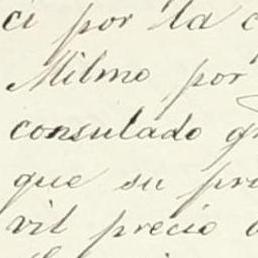 ci por la c
Milmo por
consulado g
que su pre
vil precio